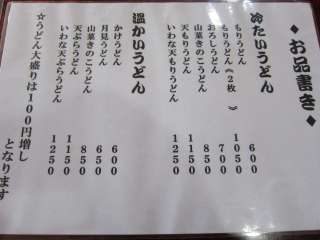 ◆お品書き◆
冷たいうどん
もりうどん 600
もりうどん《2枚》 1050
おろしうどん 700
山菜きのこうどん 850
天もりうどん 1150
いわな天もりうどん 1250
温かいうどん
かけうどん 600
月見うどん 650
山菜きのこうどん 850
天ぷらうどん 1150
いわな天ぷらうどん 1250
☆うどん大盛りは100円増し
となります